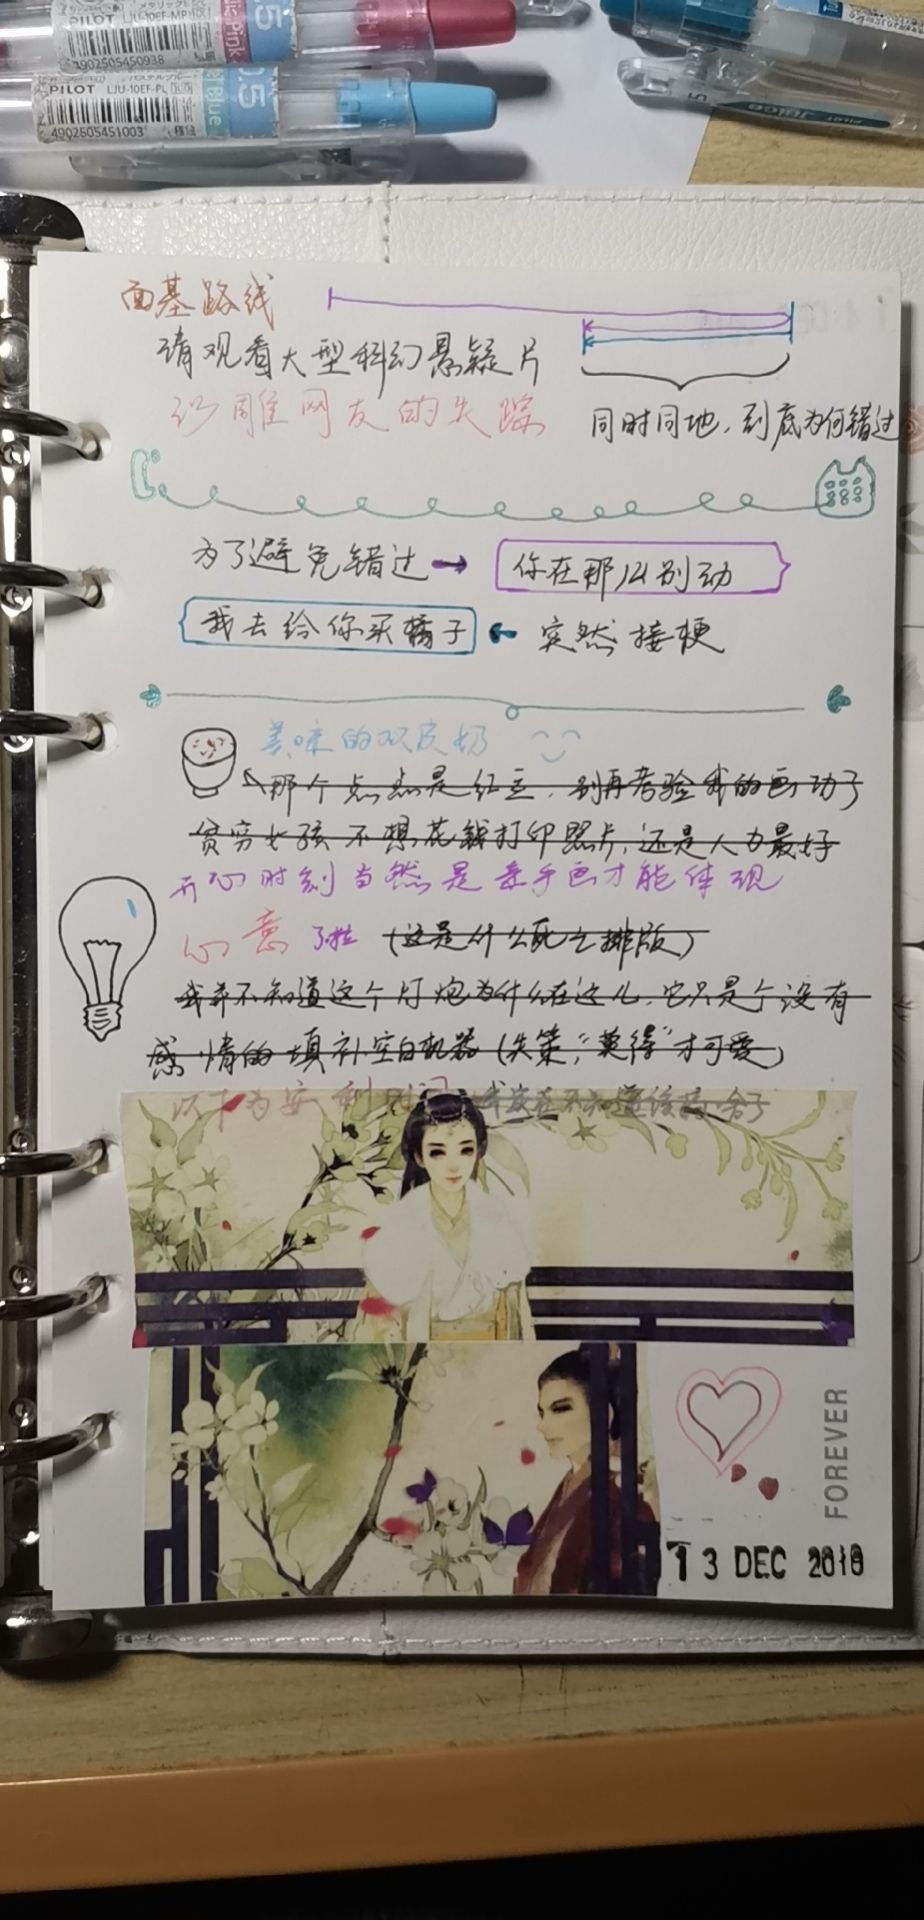 PILOT LJU-10EF-MP
4902505450938
0.5
PILOT LJU-10EF-PL
4902505451003
0.5
PILOT Juice
面基路线
请观看大型科幻悬疑片
沙雕网友的失踪
同时同地，到底为何错过
为了避免错过→ 你在那儿别动
我去给你买橘子 ← 突然接梗
美味的双皮奶
那个点点是红豆，别再考验我的画功了
贫穷女孩不想花钱打印照片，还是人力最好
开心时刻当然是亲手画才能体现
心意了啦（这是什么死亡排版）
我并不知道这个灯炮为什么在这儿，它只是个没有
感情的填补空白机器（失策，“莫得”才可爱）
以下为安利时间
FOREVER
13 DEC 2018